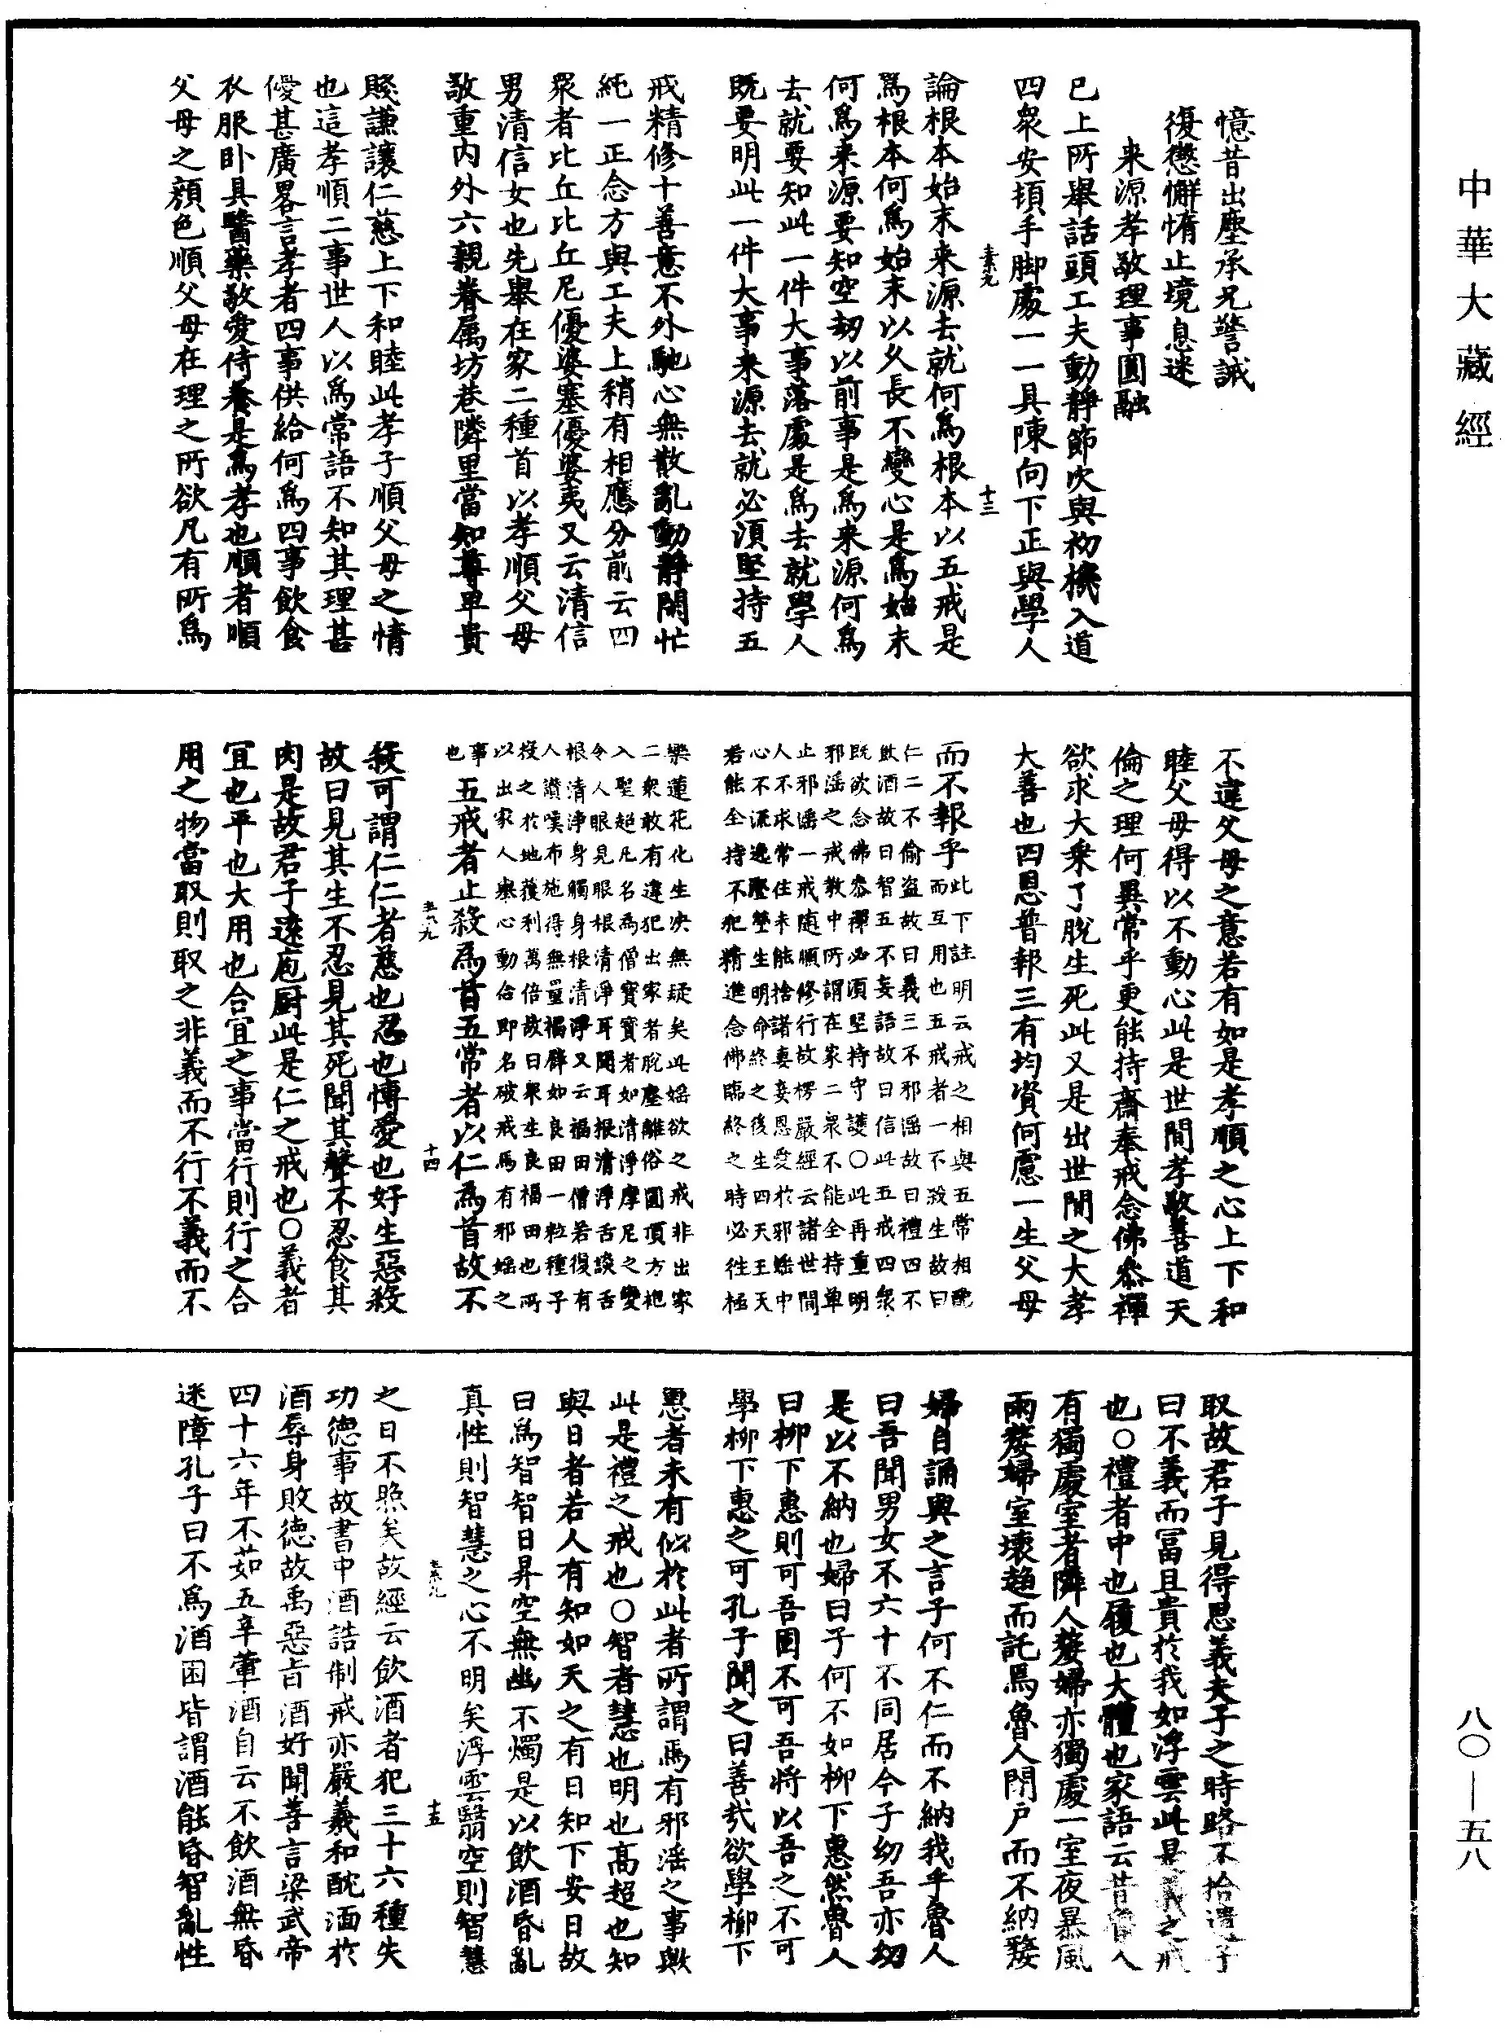 中華大藏經
憶昔出塵承兄警誡
復懲懈惰止境息迷
来源孝敬理事圓融
已上所舉話頭工夫動靜節次與初機入道
四衆安頓手脚處一一具陳向下正與學人
論根本始末来源去就何為根本以五戒是
為根本何為始末以久長不變心是為始末
何為来源要知空劫以前事是為来源何為
去就要知此一件大事落處是為去就學人
既要明此一件大事来源去就必須堅持五
戒精修十善意不外馳心無散亂動靜閑忙
純一正念方與工夫上稍有相應分前云四
眾者比丘比丘尼優婆塞優婆夷又云清信
男清信女也先舉在家二種首以孝順父母
敬重内外六親眷属坊巷隣里當知尊卑貴
賤謙讓仁慈上下和睦此孝子順父母之情
也這孝順二事世人以為常語不知其理甚
優甚廣畧言孝者四事供給何為四事飲食
衣服卧具醫藥敬愛侍養是為孝也順者順
父母之顔色順父母在理之所欲凡有所為
不違父母之意若有如是孝順之心上下和
睦父母得以不動心此是世間孝敬善道天
倫之理何異常乎更能持齋奉戒念佛叅禪
欲求大乘了脱生死此又是出世間之大孝
大善也四恩普報三有均資何慮一生父母
而不報乎
此下註明云戒之相與五常相配
而互用也五戒者一不殺生故曰
仁二不偷盗故曰義三不邪滛故曰禮四不
飲酒故曰智五不妄語故曰信此五戒四衆
既欲念佛叅禪必須堅持守護○此再重明
邪滛之戒教中所謂在家二衆不能全持單
止邪滛一戒随順修行故楞嚴經云諸世間
人不求常住未能捨諸妻妾恩愛於邪婬中
心不流逸壓瑩生明命終之後生四天王天
若能全持不犯精進念佛臨終之時必往極
樂蓮花化生决無疑矣此婬欲之戒非出家
二衆敢有違犯出家者脱塵離俗圓頂方袍
入聖超凡名為僧寳寳者如清淨摩尼之變
令人眼見眼根清淨耳聞耳根清淨舌談舌
根清淨身觸身根清淨又云福田僧若復有
人讃嘆布施得無量福譬如良田一粒種子
投之於地獲利萬倍故曰衆生良福田也所
以出家人舉心動念即名破戒焉有邪婬之
事也
五戒者止殺為首五常者以仁為首故不
殺可謂仁仁者慈也忍也愽愛也好生惡殺
故曰見其生不忍見其死聞其聲不忍食其
肉是故君子遠庖厨此是仁之戒也○義者
宜也平也大用也合宜之事當行則行之合
用之物當取則取之非義而不行不義而不
取故君子見得思義夫子之時路不拾遺孑
曰不義而冨且貴於我如浮雲此是義之戒
也○禮者中也履也大體也家語云昔魯人
有獨處室者隣人嫠婦亦獨處一室夜暴風
雨嫠婦室壞趋而託焉魯人閉户而不納嫠
婦自誦與之言子何不仁而不納我乎魯人
曰吾聞男女不六十不同居今子㓜吾亦㓜
是以不納也婦曰子何不如柳下惠然魯人
曰柳下惠則可吾固不可吾将以吾之不可
學柳下惠之可孔子聞之曰善㢤欲學柳下
惠者未有似於此者所謂焉有邪滛之事歟
此是禮之戒也○智者慧也明也高超也知
與日者若人有知如天之有日知下安日故
曰為智智日昇空無幽不燭是以飲酒昏亂
真性則智慧之心不明矣浮雲翳空則智慧
之日不照矣故經云飲酒者犯三十六種失
功德事故書中酒誥制戒亦嚴羲和酖湎於
酒辱身敗德故禹惡旨酒好聞善言梁武帝
四十六年不茹五辛葷酒自云不飲酒無昏
迷障孔子曰不為酒困皆謂酒能昏智亂性
十三
十四
十五
八〇—五八